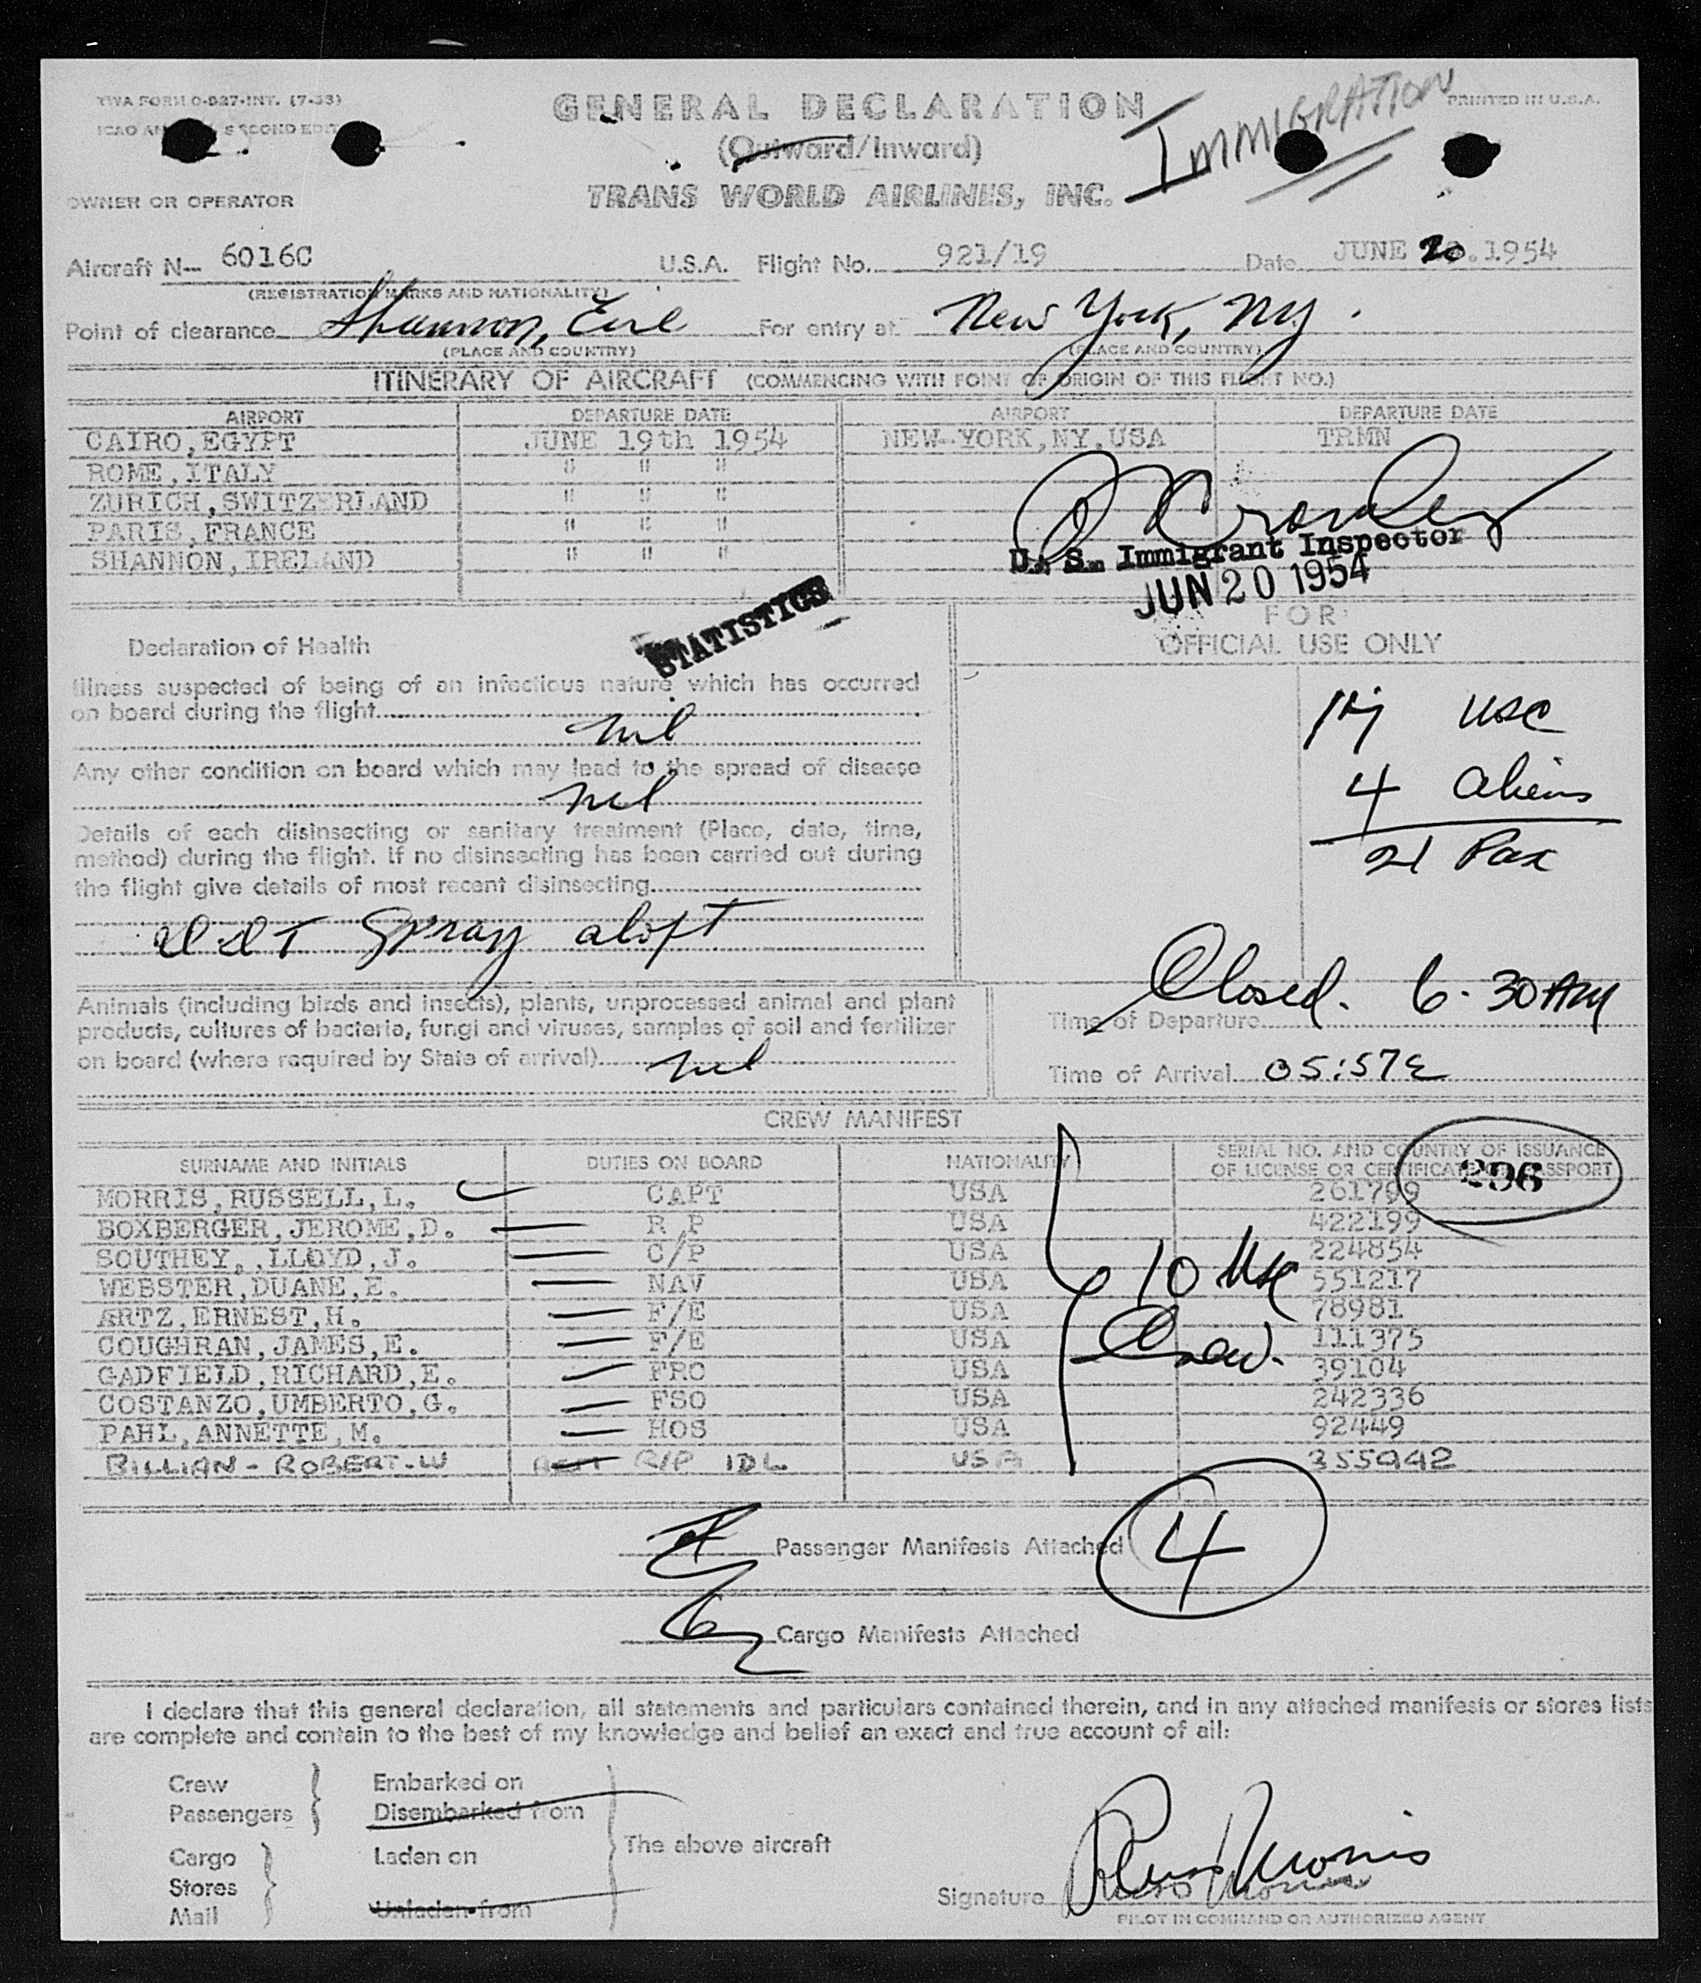 TWA FORM O-527-INT. (7-53)
GENERAL DECLARATION
IMMIGRATION
PRINTED IN U.S.A.
(Outward/Inward)
OWNER OR OPERATOR
TRANS WORLD AIRLINES, INC.
Aircraft N- 6016C U.S.A. Flight No. 921/19 Date JUNE 20.1954
(REGISTRATION MARKS AND NATIONALITY)
Point of clearance Shannon, Eire For entry at New York, NY.
(PLACE AND COUNTRY) (PLACE AND COUNTRY)
ITINERARY OF AIRCRAFT (COMMENCING WITH POINT OF ORIGIN OF THIS FLIGHT NO.)
AIRPORT DEPARTURE DATE AIRPORT DEPARTURE DATE
CAIRO,EGYPT JUNE 19th 1954 NEW YORK,NY,USA TRMN
ROME,ITALY " " "
ZURICH,SWITZERLAND " " "
PARIS,FRANCE " " "
SHANNON,IRELAND " " "
U. S. Immigrant Inspector
JUN 20 1954
STATISTICS
FOR
OFFICIAL USE ONLY
Declaration of Health
Illness suspected of being of an infectious nature which has occurred
on board during the flight
nil
Any other condition on board which may lead to the spread of disease
nil
Details of each disinsecting or sanitary treatment (Place, date, time,
method) during the flight. If no disinsecting has been carried out during
the flight give details of most recent disinsecting
DDT Spray aloft
17 USC
4 aliens
21 Pax
Animals (including birds and insects), plants, unprocessed animal and plant
products, cultures of bacteria, fungi and viruses, samples of soil and fertilizer
on board (where required by State of arrival) nil
Closed. 6.30 AM
Time of Departure
Time of Arrival 05:57E
CREW MANIFEST
SURNAME AND INITIALS DUTIES ON BOARD NATIONALITY SERIAL NO. AND COUNTRY OF ISSUANCE
OF LICENSE OR CERTIFICATE OR PASSPORT
296
MORRIS,RUSSELL,L. CAPT USA 261799
BOXBERGER,JEROME,D. R P USA 422199
SOUTHEY.,LLOYD,J. C/P USA 224854
WEBSTER,DUANE,E. NAV USA 551217
ARTZ,ERNEST,H. F/E USA 78981
COUGHRAN,JAMES,E. F/E USA 111375
GADFIELD,RICHARD,E. FRO USA 39104
COSTANZO,UMBERTO,G. FSO USA 242336
PAHL,ANNETTE,M. HOS USA 92449
BILLIAN - ROBERT-W R/P IDL USA 355942
10 USC
Crew.
Passenger Manifests Attached 4
Cargo Manifests Attached
I declare that this general declaration, all statements and particulars contained therein, and in any attached manifests or stores lists
are complete and contain to the best of my knowledge and belief an exact and true account of all:
Crew Embarked on
Passengers Disembarked from
The above aircraft
Cargo Laden on
Stores
Mail Unladen from
Signature Russ Morris
PILOT IN COMMAND OR AUTHORIZED AGENT